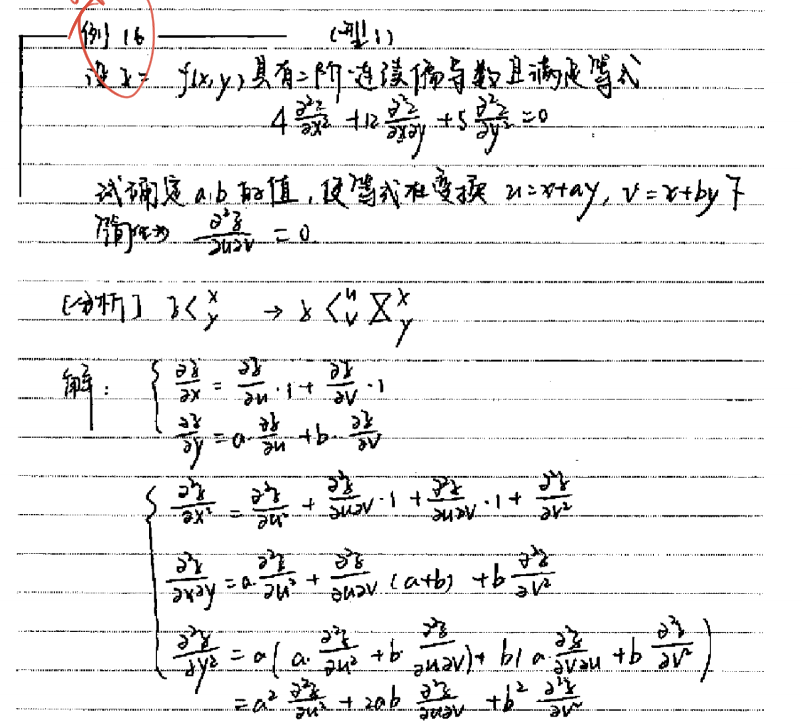 例16 (型1)
设z = f(x,y)具有二阶连续偏导数且满足等式
4 ∂²z/∂x² + 12 ∂²z/∂x∂y + 5 ∂²z/∂y² = 0
试确定a.b的值,使等式在变换 u=x+ay, v=x+by下
简化为 ∂²z/∂u∂v = 0
[分析] z< x y → z< u v x y
解: { ∂z/∂x = ∂z/∂u · 1 + ∂z/∂v · 1
∂z/∂y = a · ∂z/∂u + b · ∂z/∂v
{ ∂²z/∂x² = ∂²z/∂u² + ∂²z/∂u∂v · 1 + ∂²z/∂u∂v · 1 + ∂²z/∂v²
∂²z/∂x∂y = a · ∂²z/∂u² + ∂²z/∂u∂v (a+b) + b ∂²z/∂v²
∂²z/∂y² = a( a · ∂²z/∂u² + b · ∂²z/∂u∂v) + b( a · ∂²z/∂v∂u + b ∂²z/∂v² )
= a² ∂²z/∂u² + 2ab ∂²z/∂u∂v + b² ∂²z/∂v²